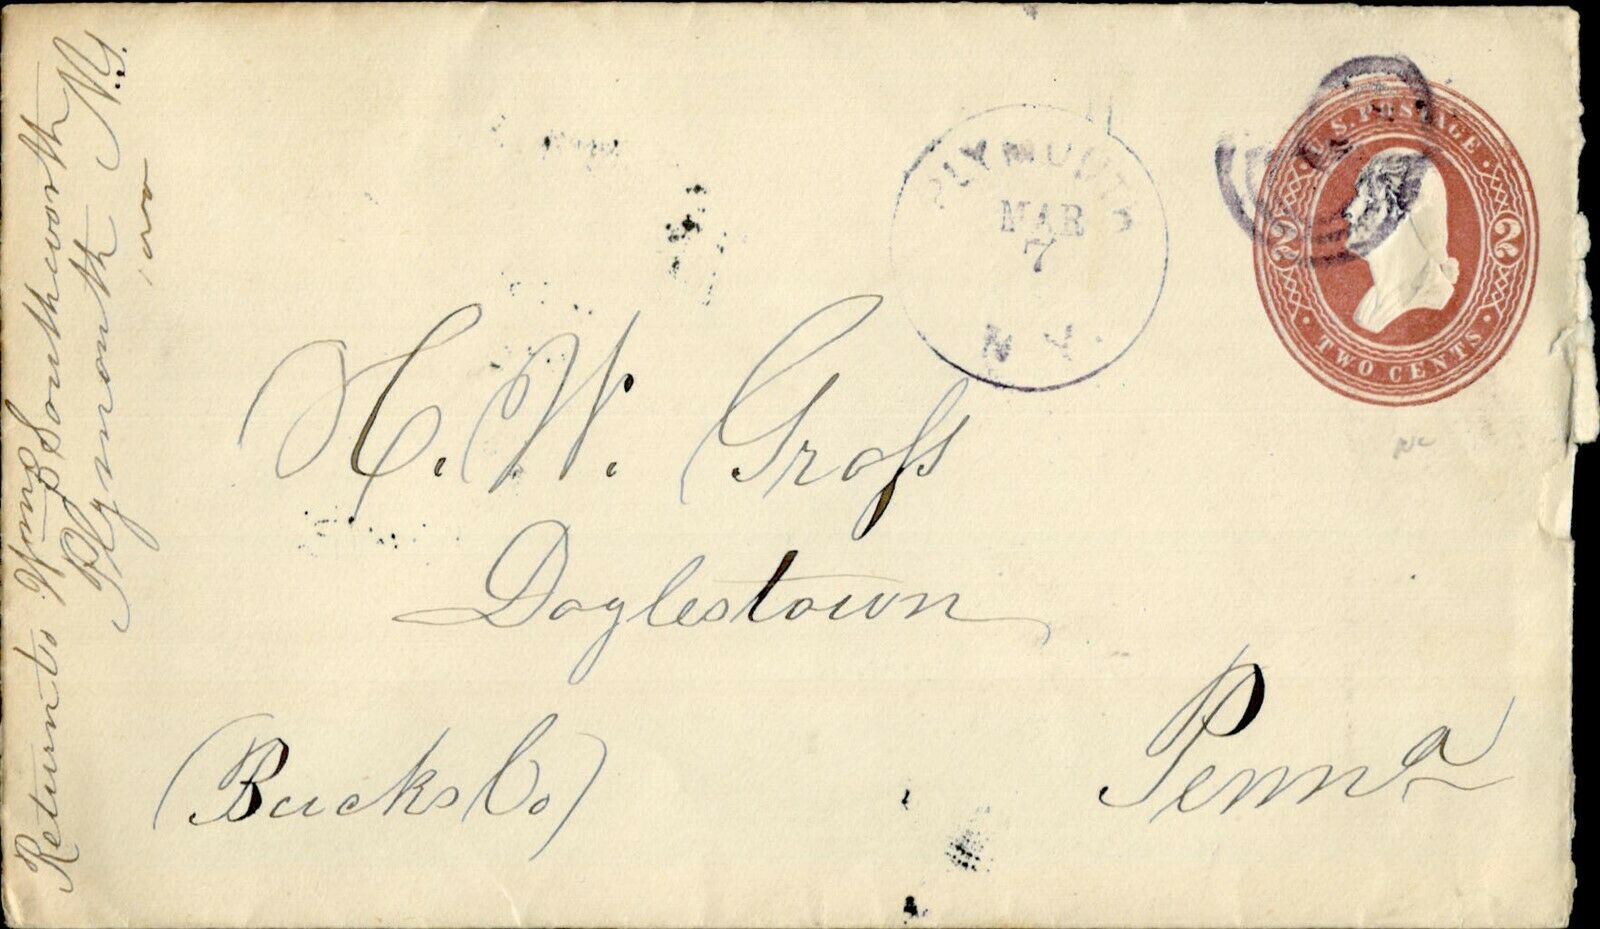 Return to Wm Southworth
Plymouth N.Y.
PLYMOUTH
MAR
7
N.Y.
U.S. POSTAGE
2 2
TWO CENTS
H. W. Gross
Doylestown
(Bucks Co)
Penna